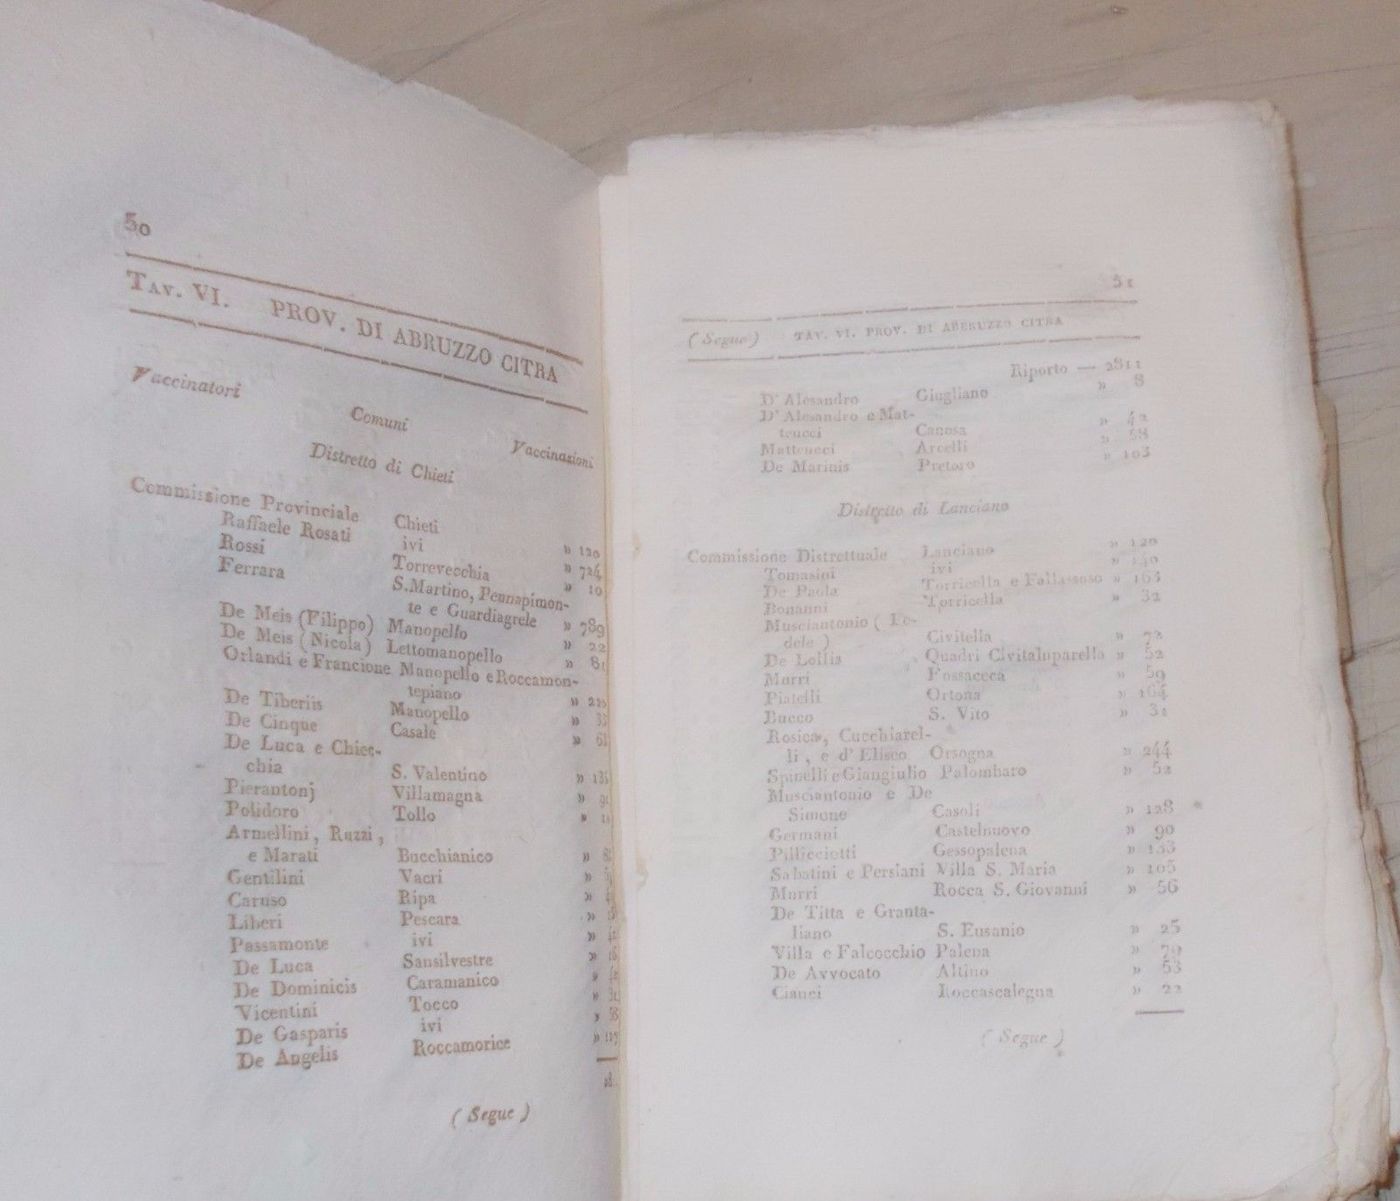 50
TAV. VI. PROV. DI ABRUZZO CITRA
Vaccinatori Comuni Vaccinazioni
Distretto di Chieti
Commissione Provinciale Chieti » 120
Raffaele Rosati ivi » 724
Rossi Torrevecchia » 10
Ferrara S.Martino, Pennapimon-
te e Guardiagrele » 789
De Meis (Filippo) Manopello » 22
De Meis (Nicola) Lettomanopello » 81
Orlandi e Francione Manopello e Roccamon-
tepiano »
De Tiberiis Manopello »
De Cinque Casale »
De Luca e Chiec-
chia S. Valentino »
Pierantonj Villamagna »
Polidoro Tollo »
Armellini, Razzi,
e Marati Bucchianico »
Gentilini Vacri »
Caruso Ripa »
Liberi Pescara »
Passamonte ivi »
De Luca Sansilvestre »
De Dominicis Caramanico »
Vicentini Tocco »
De Gasparis ivi »
De Angelis Roccamorice »
(Segue)
51
(Segue) TAV. VI. PROV. DI ABRUZZO CITRA
Riporto — 2811
D' Alesandro Giugliano » 8
D' Alesandro e Mat-
teucci Canosa » 42
Matteucci Arcelli »
De Marinis Pretoro » 103
Distretto di Lanciano
Commissione Distrettuale Lanciano » 120
Tomasini ivi » 240
De Paola Torricella e Fallassoso » 163
Bonanni Torricella » 32
Musciantonio (Fe-
dele) Civitella » 72
De Lollis Quadri Civitaluparella » 52
Murri Fossaceca » 59
Piatelli Ortona » 164
Bucco S. Vito »
Rosica, Cucchiarel-
li, e d' Eliseo Orsogna » 244
Spinelli e Giangiulio Palombaro » 52
Musciantonio e De
Simone Casoli » 128
Germani Castelnuovo » 90
Pillicciotti Gessopalena » 133
Sabatini e Persiani Villa S. Maria » 105
Murri Rocca S. Giovanni » 56
De Titta e Granta-
liano S. Eusanio » 25
Villa e Falcocchio Palena » 79
De Avvocato Altino » 53
Cianci Roccascalegna » 22
(Segue)